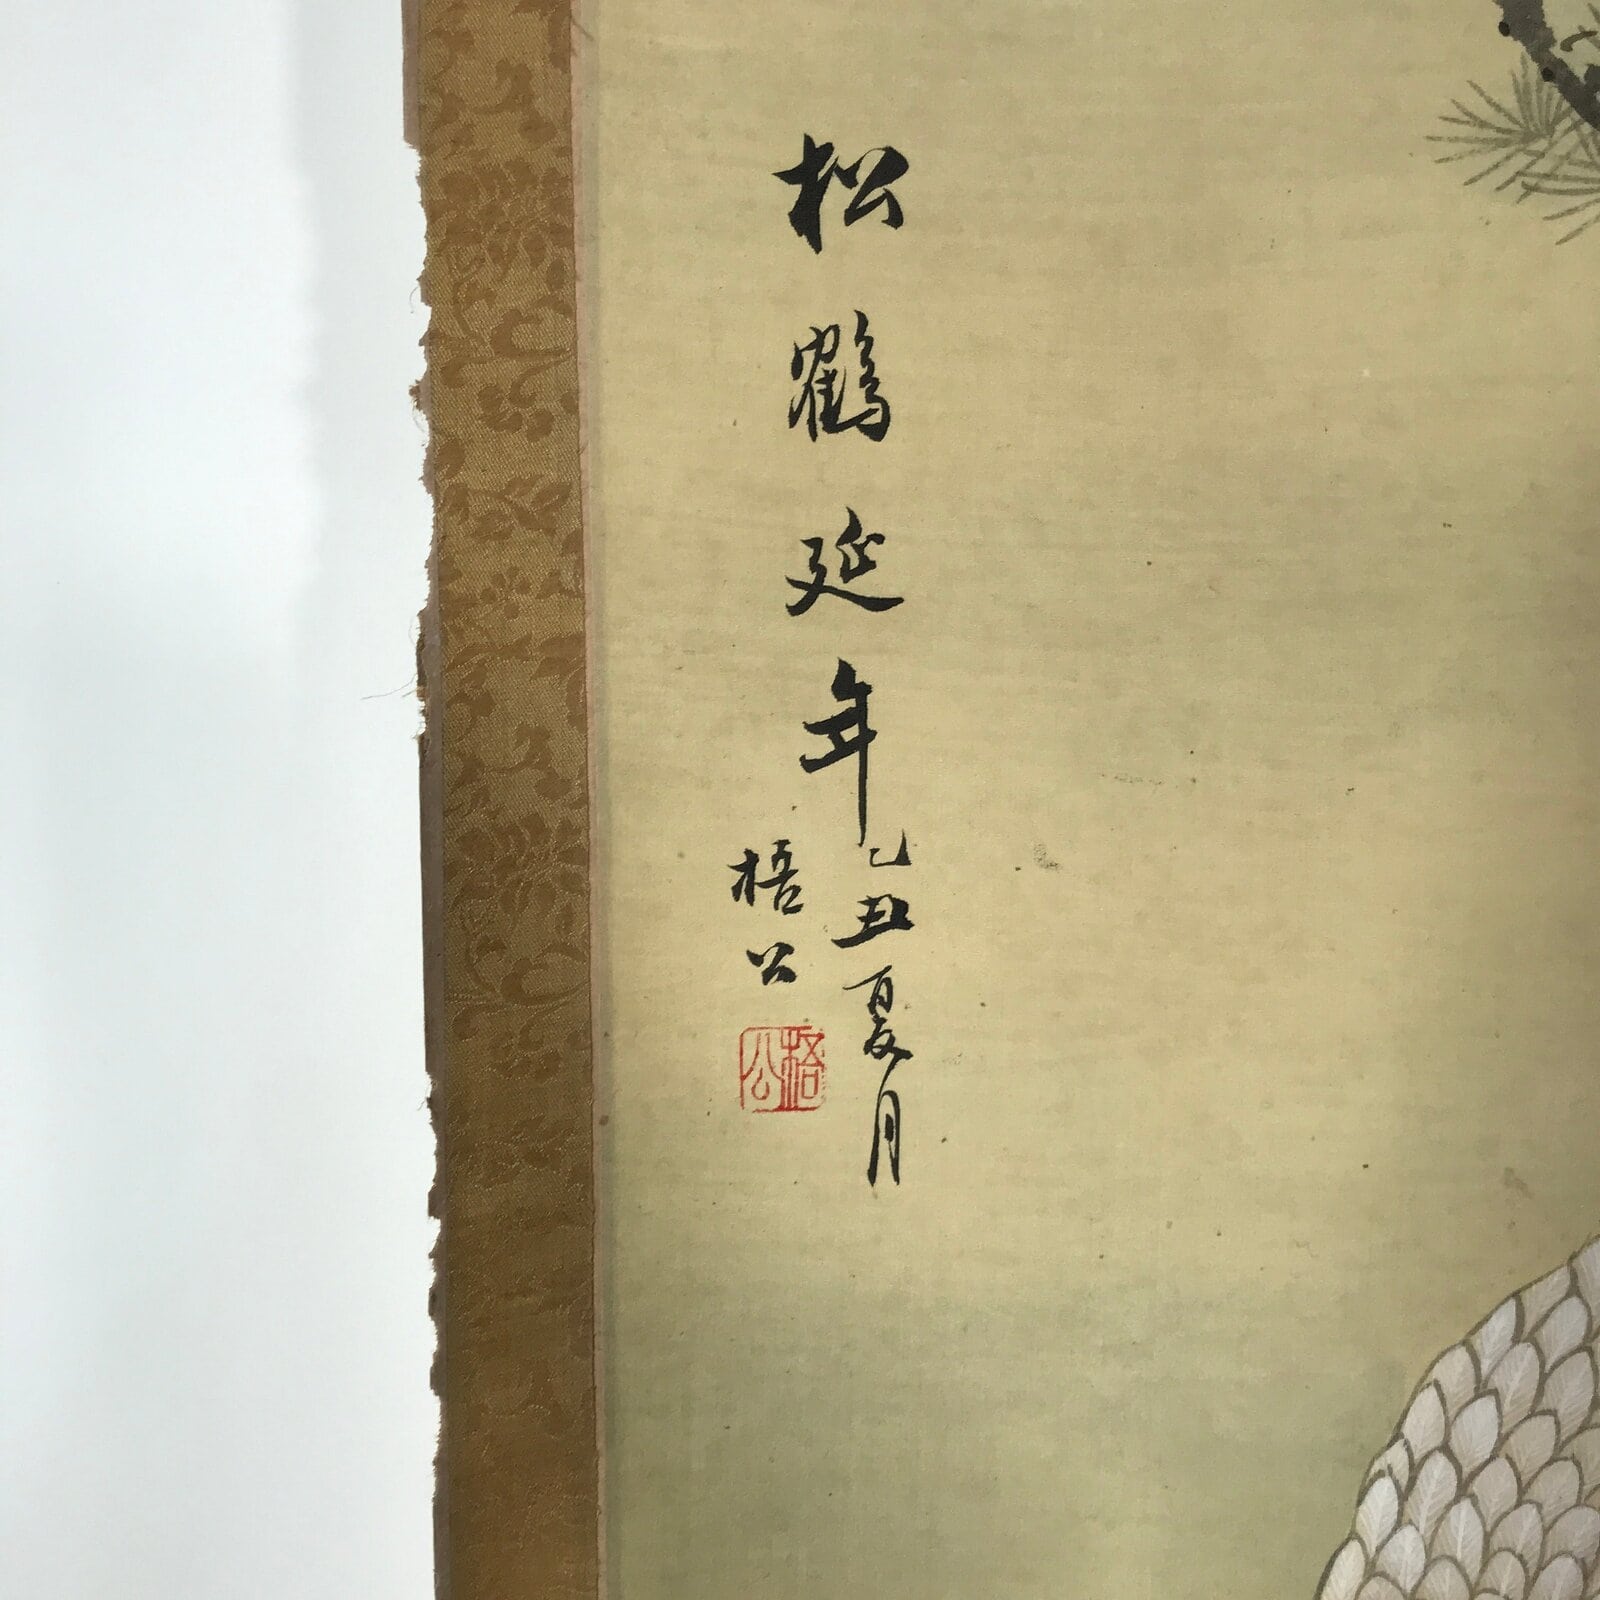 松鶴延年
己丑夏月
梧公
梧公